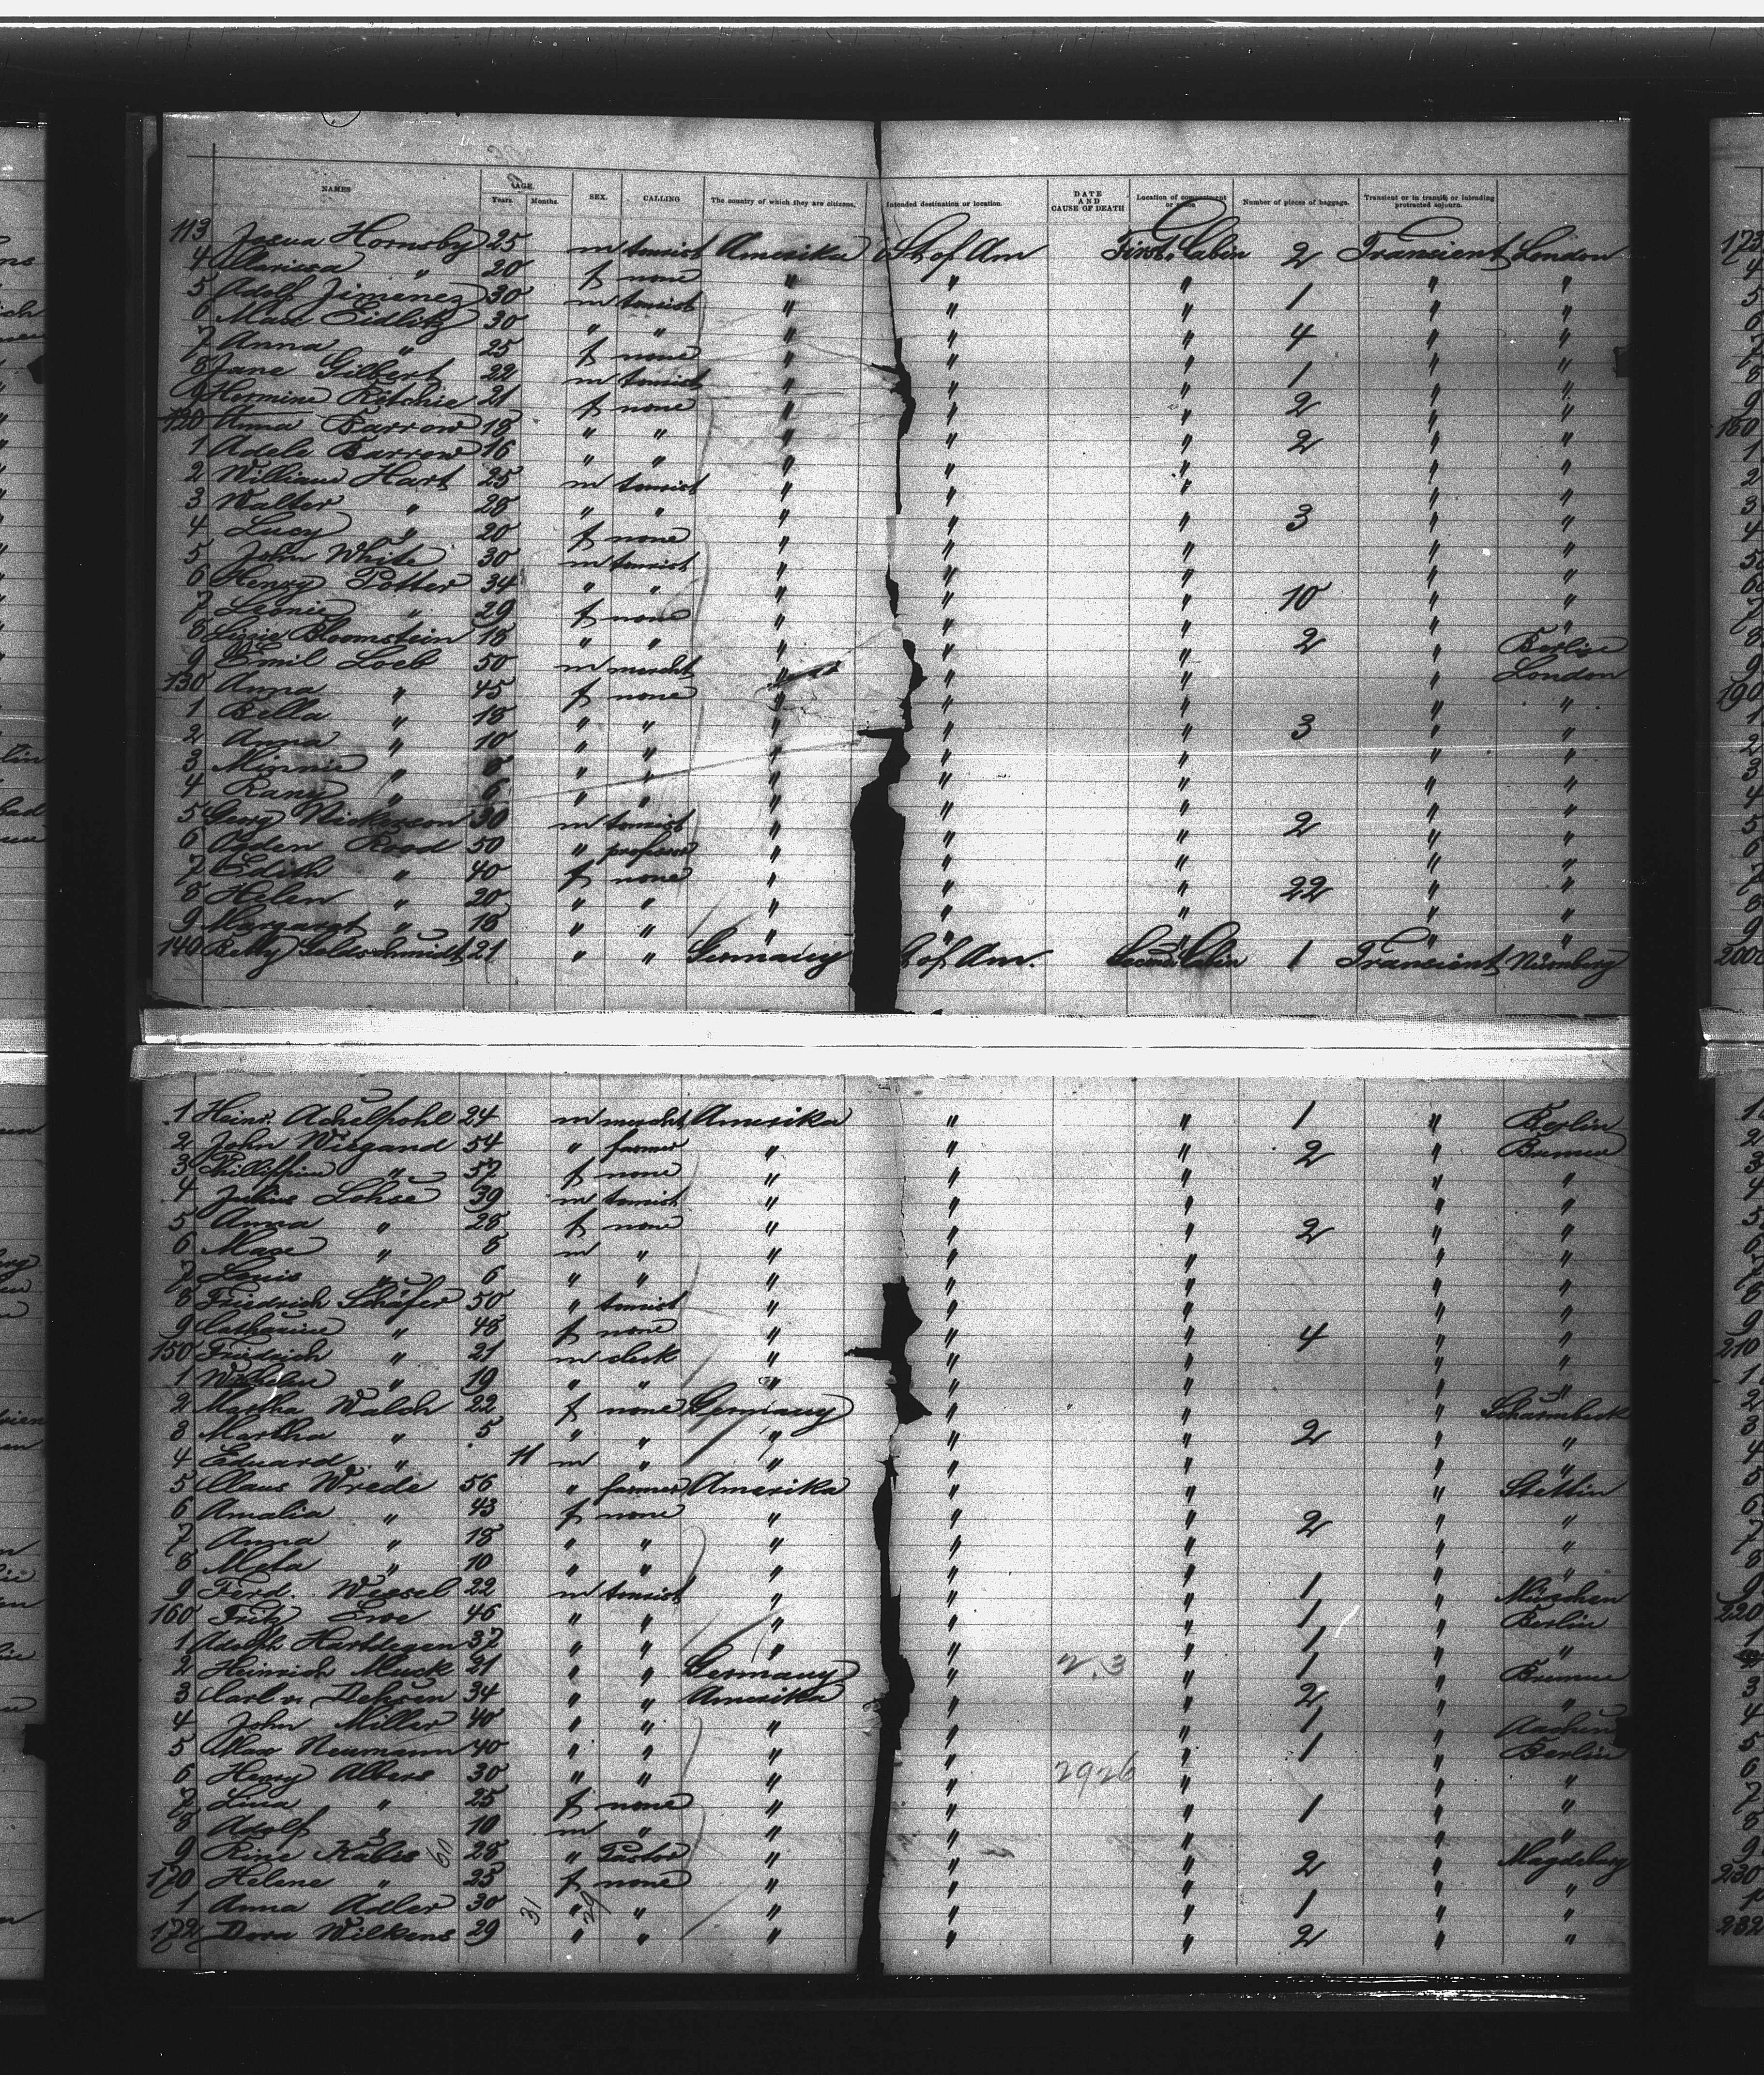 NAMES AGE. Years. Months. SEX. CALLING The country of which they are citizens. Intended destination or location. DATE AND CAUSE OF DEATH Location of compartment or space Number of pieces of baggage. Transient or in transit, or intending protracted sojourn.
113 Josua Hornsby 25 m tourist Amerika St of Am First Cabin 2 Transient London
4 Clarissa " 20 f none " " " " "
5 Adolf Jimenez 30 m tourist " " " 1 " "
6 Max Eidlitz 30 " " " " " 4 " "
7 Anna " 25 f none " " " " "
8 Jane Gilbert 22 m tourist " " " 1 " "
9 Hermine Ritchie 21 f none " " " 2 " "
120 Anna Barrow 18 " " " " " 2 " "
1 Adele Barrow 16 " " " " " " "
2 William Hart 25 m tourist " " " " "
3 Walter " 28 " " " " " 3 " "
4 Lucy " 20 f none " " " " "
5 John White 30 m tourist " " " " "
6 Henry Potter 34 " " " " " 10 " "
7 Leonie " 29 f none " " " " "
8 Lizzie Bloomstein 18 " " " " " 2 " Berlin
9 Emil Loeb 50 m mercht " " " " London
130 Anna " 45 f none " " " " "
1 Bella " 18 " " " " " 3 " "
2 Anna " 10 " " " " " " "
3 Minnie " " " " " " " "
4 Rany " 6 " " " " " " "
5 Georg Nickerson 30 m tourist " " " 2 " "
6 Ogden Rood 50 " professor " " " " "
7 Edith " 40 f none " " " 22 " "
8 Helen " 20 " " " " " " "
9 Margaret " 18 " " " " " " "
140 Betty Goldschmidt 21 " " Germany St of Am. Second Cabin 1 Transient Nürnberg
1 Heinr. Achelpohl 24 m mercht Amerika " " 1 " Berlin
2 John Wiegand 54 " farmer " " " 2 " Bremen
3 Phillippine " 52 f none " " " " "
4 Julius Lohse 39 m tourist " " " " "
5 Anna " 28 f none " " " 2 " "
6 Max " 8 m " " " " " "
7 Louis " 6 " " " " " " "
8 Friedrich Schäfer 50 " tourist " " " " "
9 Catharine " 48 f none " " " 4 " "
150 Friedrich " 21 m clerk " " " " "
1 Wilhelm " 19 " " " " " " "
2 Martha Walch 22 f none Germany " " " Scharmbeck
3 Martha " 5 " " " " " 2 " "
4 Eduard " 11 m " " " " " "
5 Claus Wrede 56 " farmer Amerika " " " Stettin
6 Amalia " 43 f none " " " 2 " "
7 Anna " 18 " " " " " " "
8 Meta " 10 " " " " " " "
9 Ferd. Wiesel 22 m tourist " " " 1 " München
160 Fritz Ewe 46 " " " " " 1 " Berlin
1 Adolph Hartdegen 37 " " " " " 1 " "
2 Heinrich Muck 21 " " Germany " 2.3 " 1 " Bremen
3 Carl v. Dehsen 34 " " Amerika " " 2 " "
4 John Miller 40 " " " " " 1 " Aachen
5 Max Neumann 40 " " " " " 1 " Berlin
6 Henry Albers 30 " " " " 2926 " " "
7 Lina " 25 f none " " " 1 " "
8 Adolf " 10 m " " " " " "
9 Rine Kabis 60 28 " Pastor " " " 2 " Magdeburg
170 Helene " 25 f none " " " " "
1 Anna Adler 30 31 " 29 " " " " 1 " "
172 Dora Wilkens 29 " " " " " 2 " "